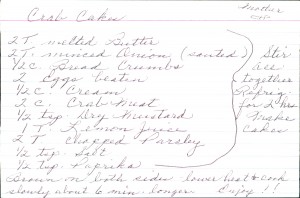 Another
Crab Cakes
2 T. melted Butter
2 T. minced Onion (sauted)
1/2 c. Bread Crumbs
2 Eggs beaten
1/2 c. Cream
2 c. Crab Meat
1/2 tsp. Dry Mustard
1 T Lemon juice
2 T Chopped Parsley
1/2 tsp. Salt
1/2 tsp. Paprika
Stir
all
together
Refrig.
for 2 hrs
Make
cakes
Brown on both sides lower heat & cook
slowly about 6 min. longer. Enjoy!!